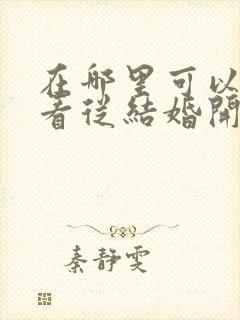 在哪里可以
看从結婚開
秦静雯